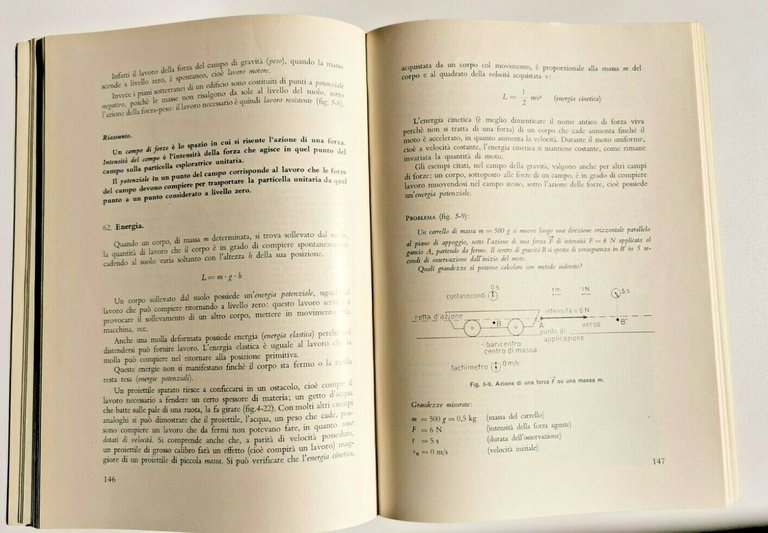 Infatti il lavoro della forza del campo di gravità (peso), quando la massa
scende a livello zero, è spontaneo, cioè lavoro motore.
Invece i piani sotterranei di un edificio sono costituiti di punti a potenziale
negativo, poichè le masse non risalgono da sole al livello del suolo, sotto
l'azione della forza-peso: il lavoro necessario è quindi lavoro resistente (fig. 5-8).
Riassunto.
Un campo di forze è lo spazio in cui si risente l'azione di una forza.
Intensità del campo è l'intensità della forza che agisce in quel punto del
campo sulla particella esploratrice unitaria.
Il potenziale in un punto del campo corrisponde al lavoro che le forze
del campo devono compiere per trasportare la particella unitaria da quel
punto a un punto considerato a livello zero.
62. Energia.
Quando un corpo, di massa m determinata, si trova sollevato dal suolo,
la quantità di lavoro che il corpo è in grado di compiere spontaneamente
cadendo al suolo varia soltanto con l'altezza h della sua posizione.
L = m · g · h
Un corpo sollevato dal suolo possiede un'energia potenziale, uguale al
lavoro che può compiere ritornando a livello zero: questo lavoro servirà a
provocare il sollevamento di un altro corpo, mettere in movimento una
macchina, ecc.
Anche una molla deformata possiede energia (energia elastica) perchè nel
distendersi può fornire lavoro. L'energia elastica è uguale al lavoro che la
molla può compiere nel ritornare alla posizione primitiva.
Queste energie non si manifestano finchè il corpo sta fermo o la molla
resta tesa (energie potenziali).
Un proiettile sparato riesce a conficcarsi in un ostacolo, cioè compie il
lavoro necessario a fendere un certo spessore di materia; un getto d'acqua
che batte sulle pale di una ruota, la fa girare (fig.4-22). Con molti altri esempi
analoghi si può dimostrare che il proiettile, l'acqua, un peso che cade, pos-
sono compiere un lavoro che da fermi non potevano fare, in quanto sono
dotati di velocità. Si comprende anche che, a parità di velocità posseduta,
un proiettile di grosso calibro farà un effetto (cioè compirà un lavoro) mag-
giore di un proiettile di piccola massa. Si può verificare che l'energia cinetica,
146
acquistata da un corpo col movimento, è proporzionale alla massa m del
corpo e al quadrato della velocità acquistata v:
L = 1/2 mv² (energia cinetica)
L'energia cinetica (è meglio dimenticare il nome antico di forza viva
perchè non si tratta di una forza) di un corpo che cade aumenta finchè il
moto è accelerato, in quanto aumenta la velocità. Durante il moto uniforme,
cioè a velocità costante, l'energia cinetica si mantiene costante, come rimane
invariata la quantità di moto.
Gli esempi citati, nel campo della gravità, valgono anche per altri campi
di forze: un corpo, sottoposto alle forze di un campo, è in grado di compiere
lavoro muovendosi nel campo stesso, sotto l'azione delle forze, cioè possiede
un'energia potenziale.
PROBLEMA (fig. 5-9):
Un carrello di massa m = 500 g si muove lungo una direzione orizzontale parallela
al piano di appoggio, sotto l'azione di una forza F di intensità F = 6 N applicata al
gancio A, partendo da fermo. Il centro di gravità B si sposta di conseguenza in B' in 5 se-
condi di osservazione dall'inizio del moto.
Quali grandezze si possono calcolare con metodo indiretto?
contasecondi 0s 1m 1N 5s
retta d'azione intensità = 6N
B A verso B'
punto di
applicazione
baricentro
centro di massa
tachimetro 0m/s
Fig. 5-9. Azione di una forza F su una massa m.
Grandezze misurate:
m = 500 g = 0,5 kg (massa del carrello)
F = 6 N (intensità della forza agente)
t = 5 s (durata dell'osservazione)
v₀ = 0 m/s (velocità iniziale)
147